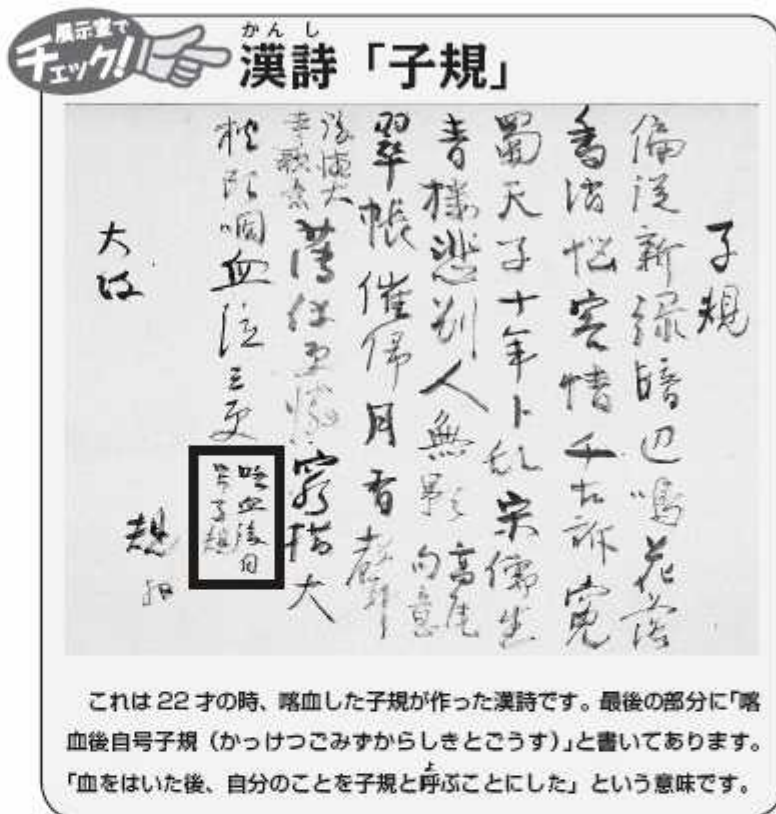 展示室で
チェック!
かんし
漢詩「子規」
子規
偏從新緑暗辺鳴花落
香消悩客情千古訴寃
蜀天子十年卜乱宋儒生
青楼悲別人無影 高尾句意
翠帳催帰月有声
後徳大寺歌意 窮措大
枕頭咽血泣三更 喀血後自号子規
大政
規
これは22才の時、喀血した子規が作った漢詩です。最後の部分に「喀
血後自号子規(かっけつごみずからしきとごうす)」と書いてあります。
「血をはいた後、自分のことを子規と呼ぶことにした」という意味です。
よ